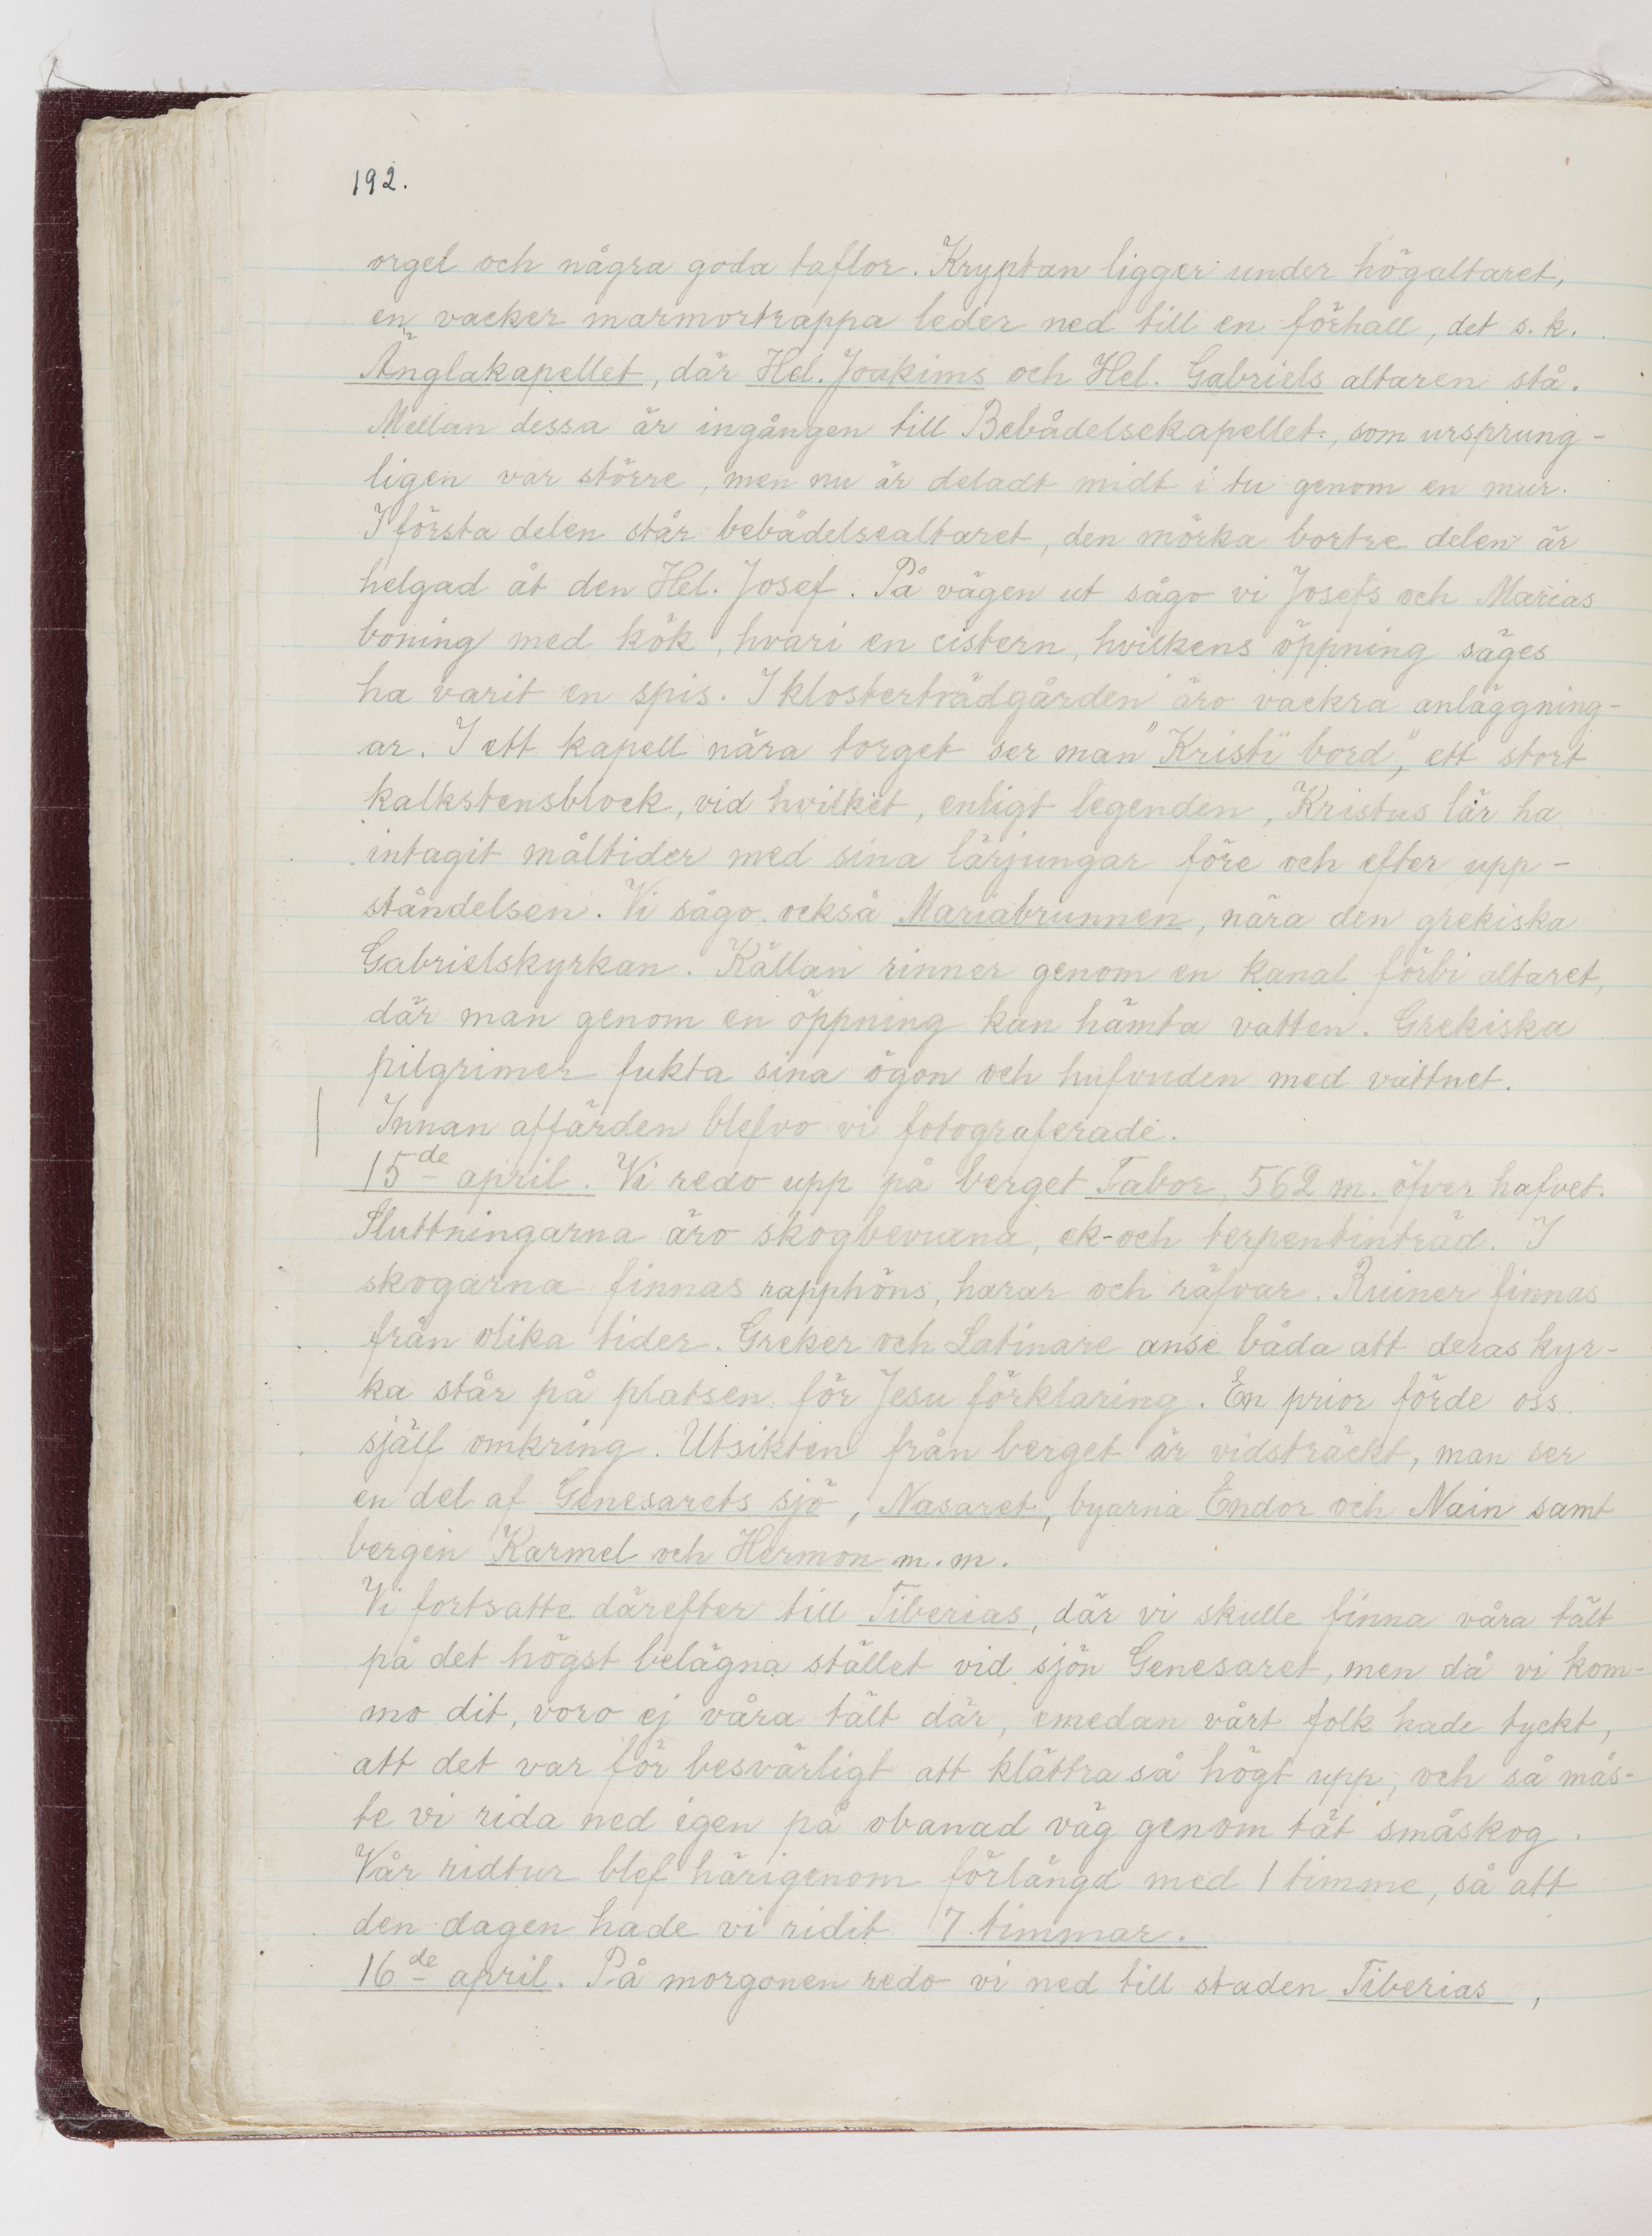 192.
orgel och några goda taflor. Kryptan ligger under högaltaret,
en vacker marmortrappa leder ned till en förhall, det s.k.
Änglakapellet, där Hel. Joakims och Hel. Gabriels altaren stå.
Mellan dessa är ingången till Bebådelsekapellet, som ursprung-
ligen var större, men nu är deladt midt i tu genom en mur.
I första delen står bebådelsealtaret, den mörka bortre delen är
helgad åt den Hel. Josef. På vägen ut sågo vi Josefs och Marias
boning med kök, hvari en cistern, hvilkens öppning säges
ha varit en spis. I klosterträdgården äro vackra anläggning-
ar. I ett kapell nära torget ser man "Kristi bord", ett stort
kalkstensblock, vid hvilket, enligt legenden, Kristus lär ha
intagit måltider med sina lärjungar före och efter upp-
ståndelsen. Vi sågo också Mariabrunnen, nära den grekiska
Gabrielskyrkan. Källan rinner genom en kanal förbi altaret,
där man genom en öppning kan hämta vatten. Grekiska
pilgrimer fukta sina ögon och hufvuden med vattnet.
Innan affärden blefvo vi fotograferade.
15de april. Vi redo upp på berget Tabor, 562 m. öfver hafvet.
Sluttningarna äro skogbevuxna, ek- och terpentinträd. I
skogarna finnas rapphöns, harar och räfvar. Ruiner finnas
från olika tider. Greker och Latinare anse båda att deras kyr-
ka står på platsen för Jesu förklaring. En prior förde oss
själf omkring. Utsikten från berget är vidsträckt, man ser
en del af Genesarets sjö, Nasaret, byarna Endor och Nain samt
bergen Karmel och Hermon m.m.
Vi fortsatte därefter till Tiberias, där vi skulle finna våra tält
på det högst belägna stället vid sjön Genesaret, men då vi kom-
mo dit, voro ej våra tält där, emedan vårt folk hade tyckt,
att det var för besvärligt att klättra så högt upp, och så mås-
te vi rida ned igen på obanad väg genom tät småskog.
Vår ridtur blef härigenom förlängd med 1 timme, så att
den dagen hade vi ridit 7 timmar.
16de april. På morgonen redo vi ned till staden Tiberias,